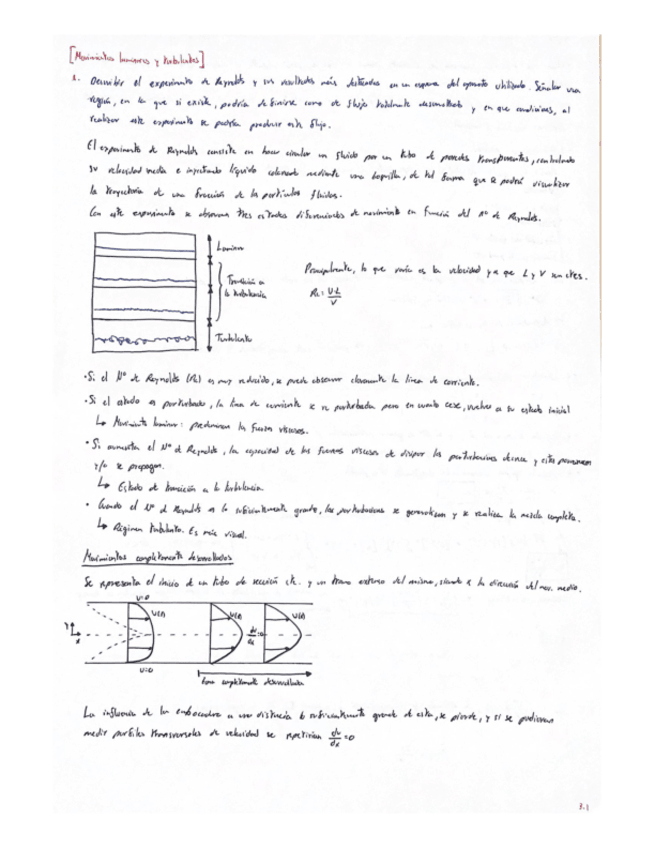 [Movimientos laminares y turbulentos]
1. Describir el experimento de Reynolds y sus resultados más destacados en un esquema del aparato utilizado. Señalar una
región, en la que si existe, podría definirse como de flujo totalmente desarrollado y en que condiciones, al
realizar este experimento se podría producir este flujo.
El experimento de Reynolds consiste en hacer circular un fluido por un tubo de paredes transparentes, controlando
su velocidad media e inyectando líquido coloreado mediante una boquilla, de tal forma que se podrá visualizar
la trayectoria de una fracción de las partículas fluidas.
Con este experimento se observan tres estados diferenciados de movimiento en función del Nº de Reynolds.
Laminar
Transición a
la turbulencia
Turbulento
Principalmente, lo que varía es la velocidad ya que L y V son ctes.
Re = U·L / V
· Si el Nº de Reynolds (Re) es muy reducido, se puede observar claramente la línea de corriente.
· Si el estado es perturbado, la línea de corriente se ve perturbada pero en cuanto cese, vuelve a su estado inicial
↳ Movimiento laminar: predominan las fuerzas viscosas.
· Si aumenta el Nº de Reynolds, la capacidad de las fuerzas viscosas de disipar las perturbaciones decrece y estas permanecen
y/o se propagan.
↳ Estado de transición a la turbulencia.
· Cuando el Nº de Reynolds es lo suficientemente grande, las perturbaciones se generalizan y se realiza la mezcla completa.
↳ Régimen turbulento. Es más visual.
Movimientos completamente desarrollados
Se representa el inicio de un tubo de sección cte. y un tramo extenso del mismo, siendo x la dirección del mov. medio.
U=0
Y
x
U(Y)
U(Y)
du/dx =0
U(Y)
U=0
tramo completamente desarrollado
La influencia de la embocadura a una distancia lo suficientemente grande de esta, se pierde, y si se pudieran
medir perfiles transversales de velocidad se repetirían du/dx =0
3.1